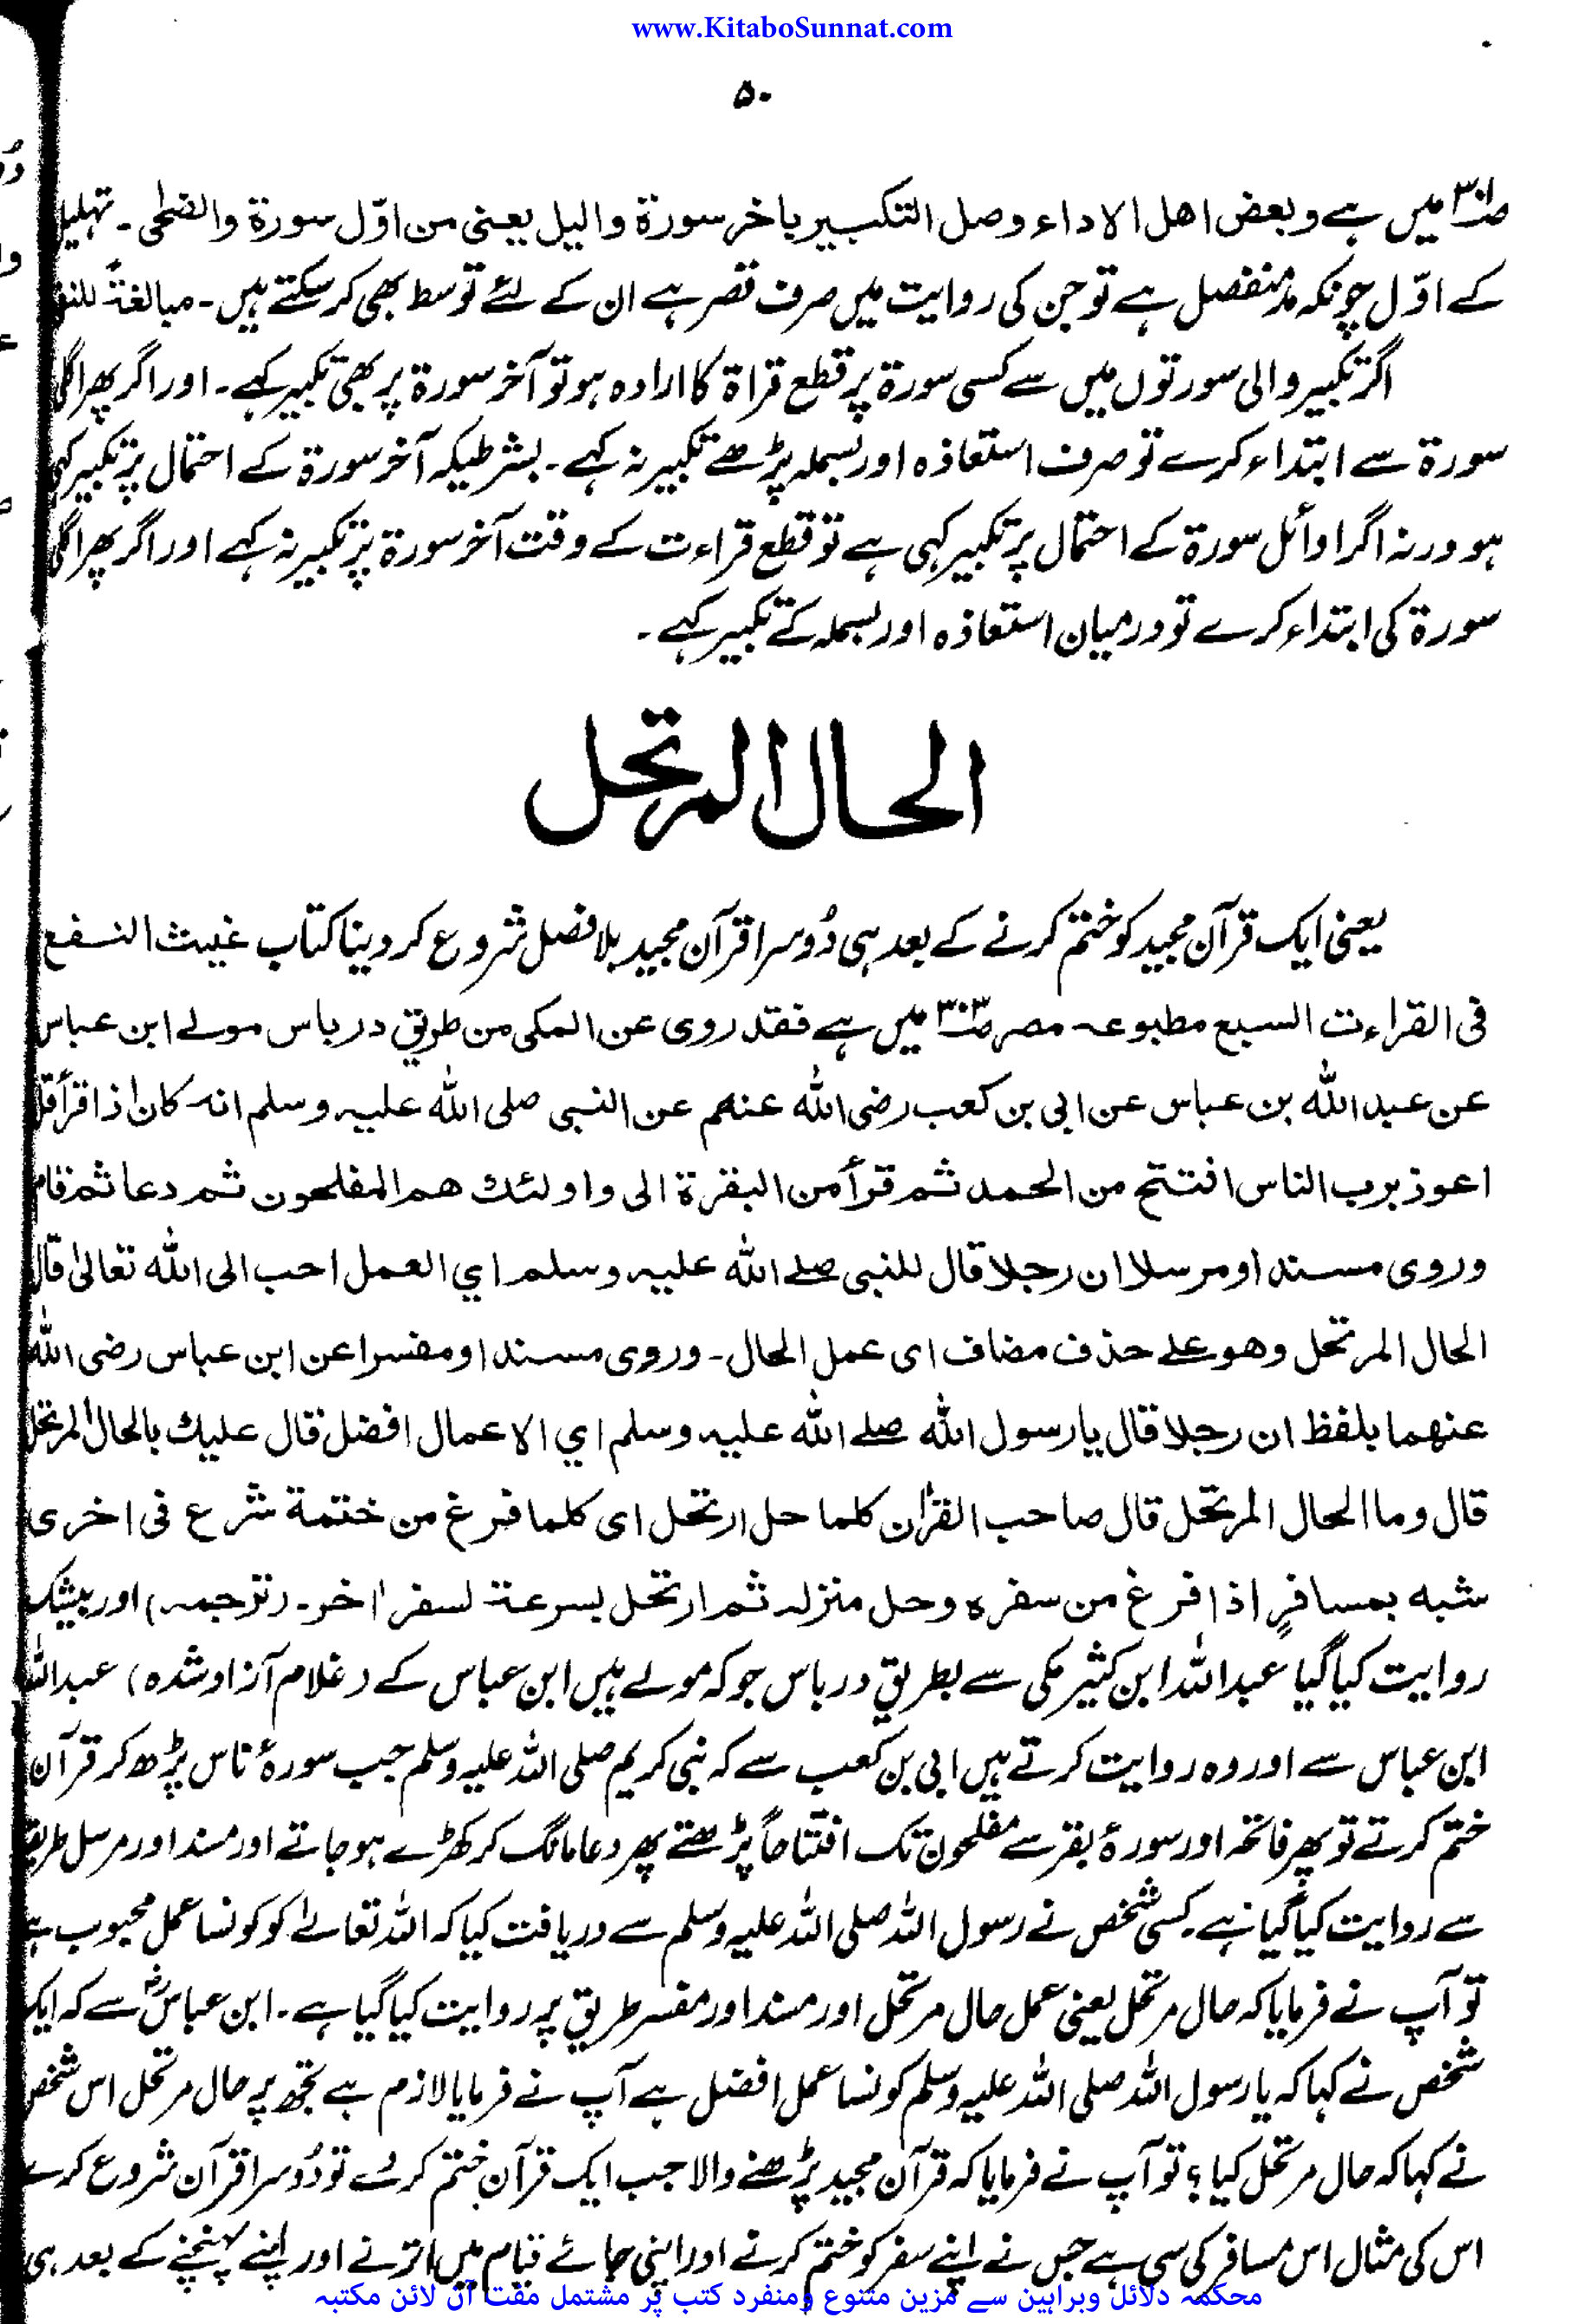 www.KitaboSunnat.com
۵۰
ص۳۰۱ میں ہے وبعض اھل الاداء وصل التکبیر باخر سورة والیل یعنی من اوّل سورة والضحٰی ۔ تہلیل
کے اوّل چونکہ مد منفصل ہے تو جن کی روایت میں صرف قصر ہے ان کے لئے توسط بھی کر سکتے ہیں ۔ مبالغۃً للنفی
اگر تکبیر والی سورتوں میں سے کسی سورۃ پر قطع قراۃ کا ارادہ ہو تو آخر سورۃ پر بھی تکبیر کہے ۔ اور اگر پھر اگلی
سورۃ سے ابتداء کرے تو صرف استعاذہ اور بسملہ پڑھے تکبیر نہ کہے ۔ بشرطیکہ آخر سورۃ کے احتمال پر تکبیر کہی
ہو ورنہ اگر اوائل سورۃ کے احتمال پر تکبیر کہی ہے تو قطع قراءت کے وقت آخر سورۃ پر تکبیر نہ کہے اور اگر پھر اگلی
سورۃ کی ابتداء کرے تو درمیان استعاذہ اور بسملہ کے تکبیر کہے ۔
الحال المرتحل
یعنی ایک قرآن مجید کو ختم کرنے کے بعد ہی دُوسرا قرآن مجید بلا فصل شروع کر دینا کتاب غیث النفع
فی القراءت السبع مطبوعہ مصر ص۳۰۳ میں ہے فقد روی عن المکی من طریق درباس مولے ابن عباس
عن عبد اللہ بن عباس عن ابی بن کعب رضی اللہ عنھم عن النبی صلی اللہ علیہ وسلم انہ کان اذا قرأ قل
اعوذ برب الناس افتتح من الحمد ثم قرأ من البقرة الی واولئك ھم المفلحون ثم دعا ثم قام
وروی مسندا ومرسلا ان رجلا قال للنبی صلے اللہ علیہ وسلم اي العمل احب الی اللہ تعالیٰ قال
الحال المرتحل وھو علے حذف مضاف ای عمل الحال ۔ وروی مسندا ومفسرا عن ابن عباس رضی اللہ
عنھما بلفظ ان رجلا قال یا رسول اللہ صلے اللہ علیہ وسلم اي الاعمال افضل قال علیك بالحال المرتحل
قال وما الحال المرتحل قال صاحب القرٰان کلما حل ارتحل ای کلما فرغ من ختمة شرع فی اخری
شبه بمسافرٍ اذا فرغ من سفرہ وحل منزلہ ثم ارتحل بسرعة لسفر اٰخر ۔ (ترجمہ) اور بیشک
روایت کیا گیا عبداللہ ابن کثیر مکی سے بطریق درباس جو کہ مولے ہیں ابن عباس کے (غلام آزاد شدہ) عبداللہ
ابن عباس سے اور وہ روایت کرتے ہیں ابی بن کعب سے کہ نبی کریم صلی اللہ علیہ وسلم جب سورۂ ناس پڑھ کر قرآن
ختم کرتے تو پھر فاتحہ اور سورۂ بقر سے مفلحون تک افتتاحاً پڑھتے پھر دعا مانگ کر کھڑے ہو جاتے اور مسند اور مرسل طریقہ
سے روایت کیا گیا ہے ۔ کسی شخص نے رسول اللہ صلی اللہ علیہ وسلم سے دریافت کیا کہ اللہ تعالےٰ کو کونسا عمل محبوب ہے
تو آپ نے فرمایا کہ حال مرتحل یعنی عمل حال مرتحل اور مسند اور مفسر طریق پر روایت کیا گیا ہے ۔ ابن عباسؓ سے کہ ایک
شخص نے کہا کہ یا رسول اللہ صلی اللہ علیہ وسلم کونسا عمل افضل ہے آپ نے فرمایا لازم ہے تجھ پر حال مرتحل اس شخص
نے کہا کہ حال مرتحل کیا ؟ تو آپ نے فرمایا کہ قرآن مجید پڑھنے والا جب ایک قرآن ختم کرلے تو دُوسرا قرآن شروع کرے
اس کی مثال اس مسافر کی سی ہے جس نے اپنے سفر کو ختم کرنے اور اپنی جائے قیام میں اترنے اور اپنے پہنچنے کے بعد ہی
محکمہ دلائل وبراہین سے مزین متنوع ومنفرد کتب پر مشتمل مفت آن لائن مکتبہ